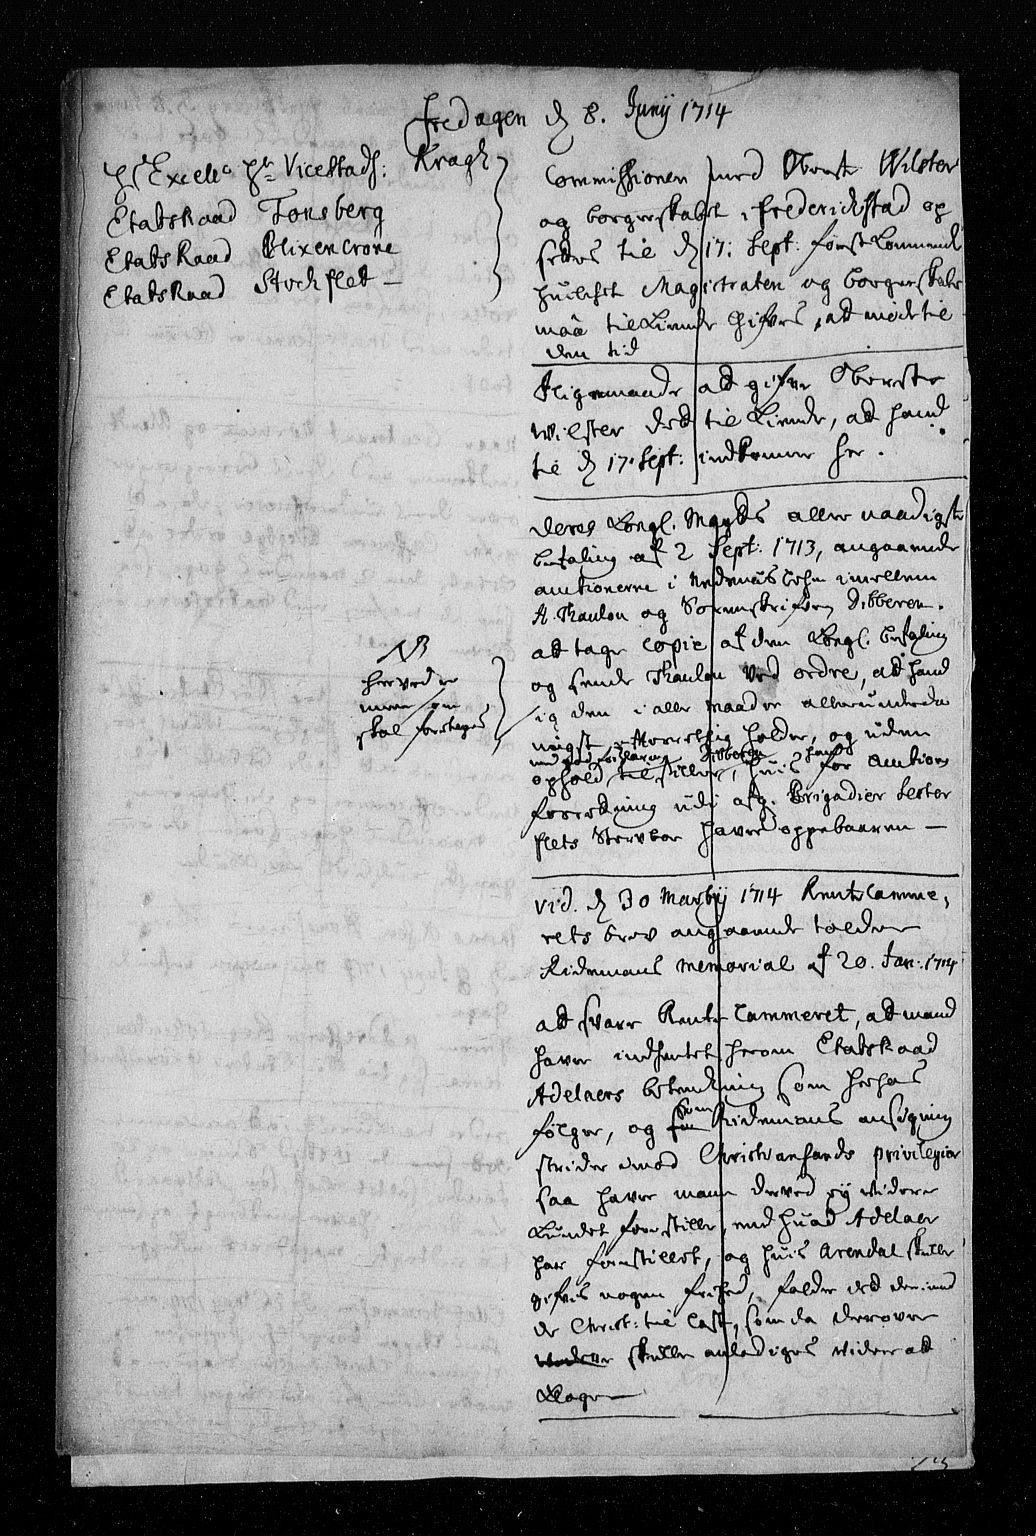 Fredagen d 8. Junij 1714
Hs Excell: Hr Vicestadh: Kragh
Etatsraad Tonsberg
Etatsraad Blixencrone
Etatsraad Stockflet —
Commissionen med Oberst Wilster
og borgerskabet i Friderichstad op
settes til d 17: Sept: førstkommende
huilchet Magistraten og borgerskabet
maa tilkiende gifves, at møde til
den tid
Iligemaade at gifve Oberste
Wilster det til kiende, at hand
til d 17. Sept: indkommer her.
Deres Kongl. Maytts aller naadigste
befaling af 2 Sept: 1713, angaaende
auctionerne i Nedenes Lehn imellem
A. Thaulou og Sorenskrifven Dibberen.
at tage copie af den Kongl. befaling
og sende Thaulou ved ordre, at hand
sig den i alle maader allerunderda
nigst efterrettelig holder, og uden
ophold tilstiller Dibberen, huis hand for auction
forretning udi afg. Brigadier Sester
flets Sterboe hafver oppebaaren —
NB
herved er
mere som
skal foretages
vid. d 30 Martij 1714 Rentecamme,
rets brev angaaende tolder
Ridemans memorial af 20. Jan: 1714
at svare Rente Cammeret, at mand
haver indhentet herom Etatsraad
Adelaers betenkning som herhos
følger, og som Ridemans ansøgning
strider imod Christiansands privilegier
saa haver mann derved ey videre
kundet forestille, end huad Adelaer
har forestillet, og huis Arendal skulle
gifves nogen frihed, falder det der imod
de Christ: til Last, som da derover
skulle anlediges videre at
klage —